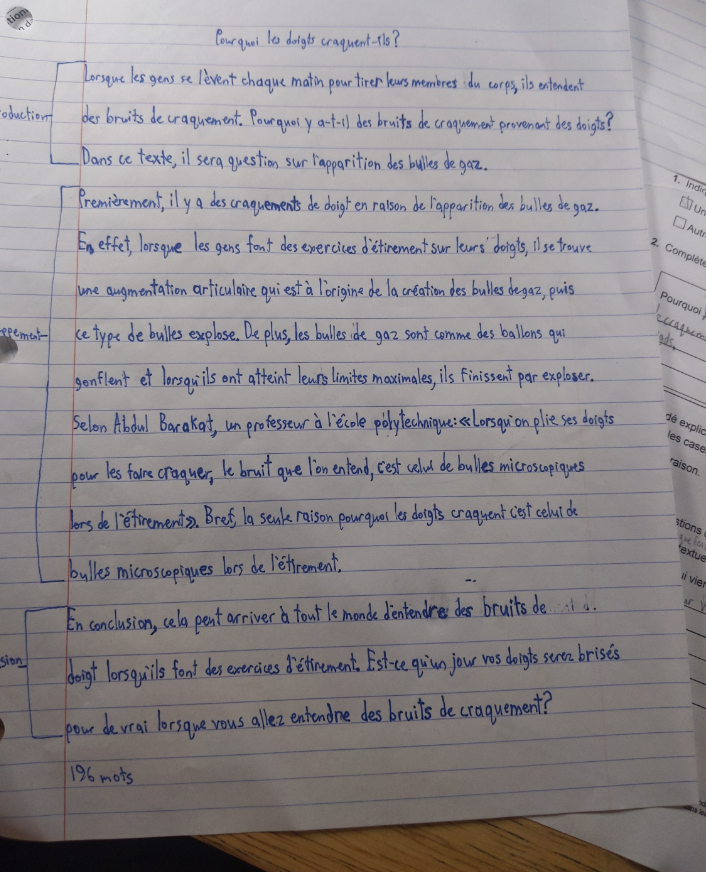 Pourquoi les doigts craquent-ils?
Lorsque les gens se lèvent chaque matin pour tirer leurs membres du corps, ils entendent
oduction
des bruits de craquement. Pourquoi y a-t-il des bruits de craquement provenant des doigts?
Dans ce texte, il sera question sur l'apparition des bulles de gaz.
Premièrement, il y a des craquements de doigt en raison de l'apparition des bulles de gaz.
En effet, lorsque les gens font des exercices d'étirement sur leurs doigts, il se trouve
une augmentation articulaire qui est à l'origine de la création des bulles de gaz, puis
ppement
ce type de bulles explose. De plus, les bulles de gaz sont comme des ballons qui
gonflent et lorsqu'ils ont atteint leurs limites maximales, ils finissent par exploser.
Selon Abdul Barakat, un professeur à l'école polytechnique: «Lorsqu'on plie ses doigts
pour les faire craquer, le bruit que l'on entend, c'est celui de bulles microscopiques
lors de l'étirement». Bref, la seule raison pourquoi les doigts craquent c'est celui de
bulles microscopiques lors de l'étirement.
En conclusion, cela peut arriver à tout le monde d'entendre des bruits de
sion
doigt lorsqu'ils font des exercices d'étirement. Est-ce qu'un jour vos doigts serez brisés
pour de vrai lorsque vous allez entendre des bruits de craquement?
196 mots
tion
1. Indi
Un
Autr
2. Complète
Pourquoi
dé explic
les case
raison.
stions
textue
il vier